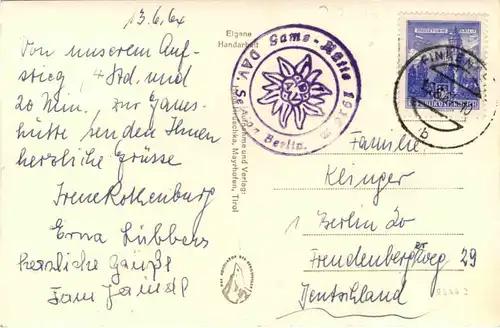 13.6.64
Von unserem Auf-
stieg, 4 Std. und
20 Min, zur Gams-
hütte, senden Ihnen
herzliche Grüsse
Irene Rothenburg
Erna Lübbers
herzliche Grüße
Eigene
Handarbeit
Gams-Hütte 1916 m
D.A.V. Berlin.
und Verlag:
Mayrhofen, Tirol
REPUBLIK ÖSTERREICH
FINKENBERG
b
Familie
Klinger
1 Berlin 20
Freudenberger Weg 29
Deutschland